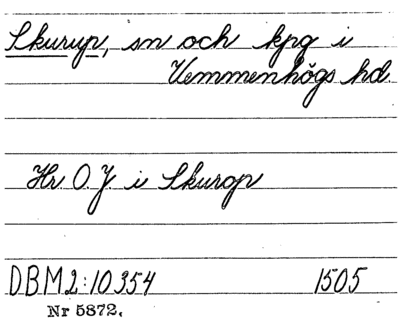 Skurup, sn och kpg i
Vemmenhögs hd.
Hr O. J. i Skurop
DBM2:10354 1505
Nr 5872.